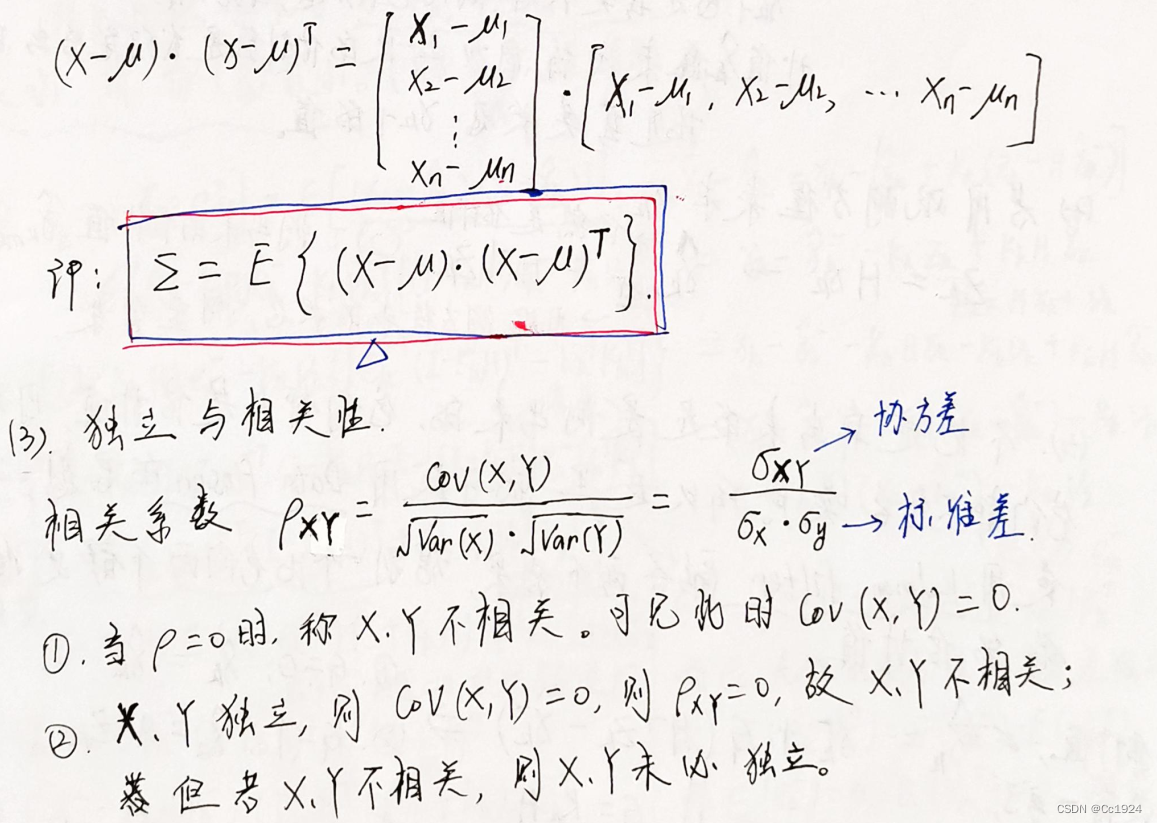 (X-μ)·(X-μ)^T = [X₁-μ₁ X₂-μ₂ ⋮ Xn-μn]·[X₁-μ₁, X₂-μ₂, ⋯ Xn-μn]
即: Σ = E{(X-μ)·(X-μ)^T}.
(3). 独立与相关性.
相关系数 ρXY = Cov(X,Y) / √Var(X)·√Var(Y) = σXY / σx·σy
→ 协方差
→ 标准差.
①. 当 ρ=0时, 称 X、Y 不相关。可见此时 Cov(X,Y)=0.
②. X、Y 独立, 则 Cov(X,Y)=0, 则 ρXY=0, 故 X、Y 不相关;
但若 X、Y 不相关, 则 X、Y 未必 独立。
CSDN @Cc1924